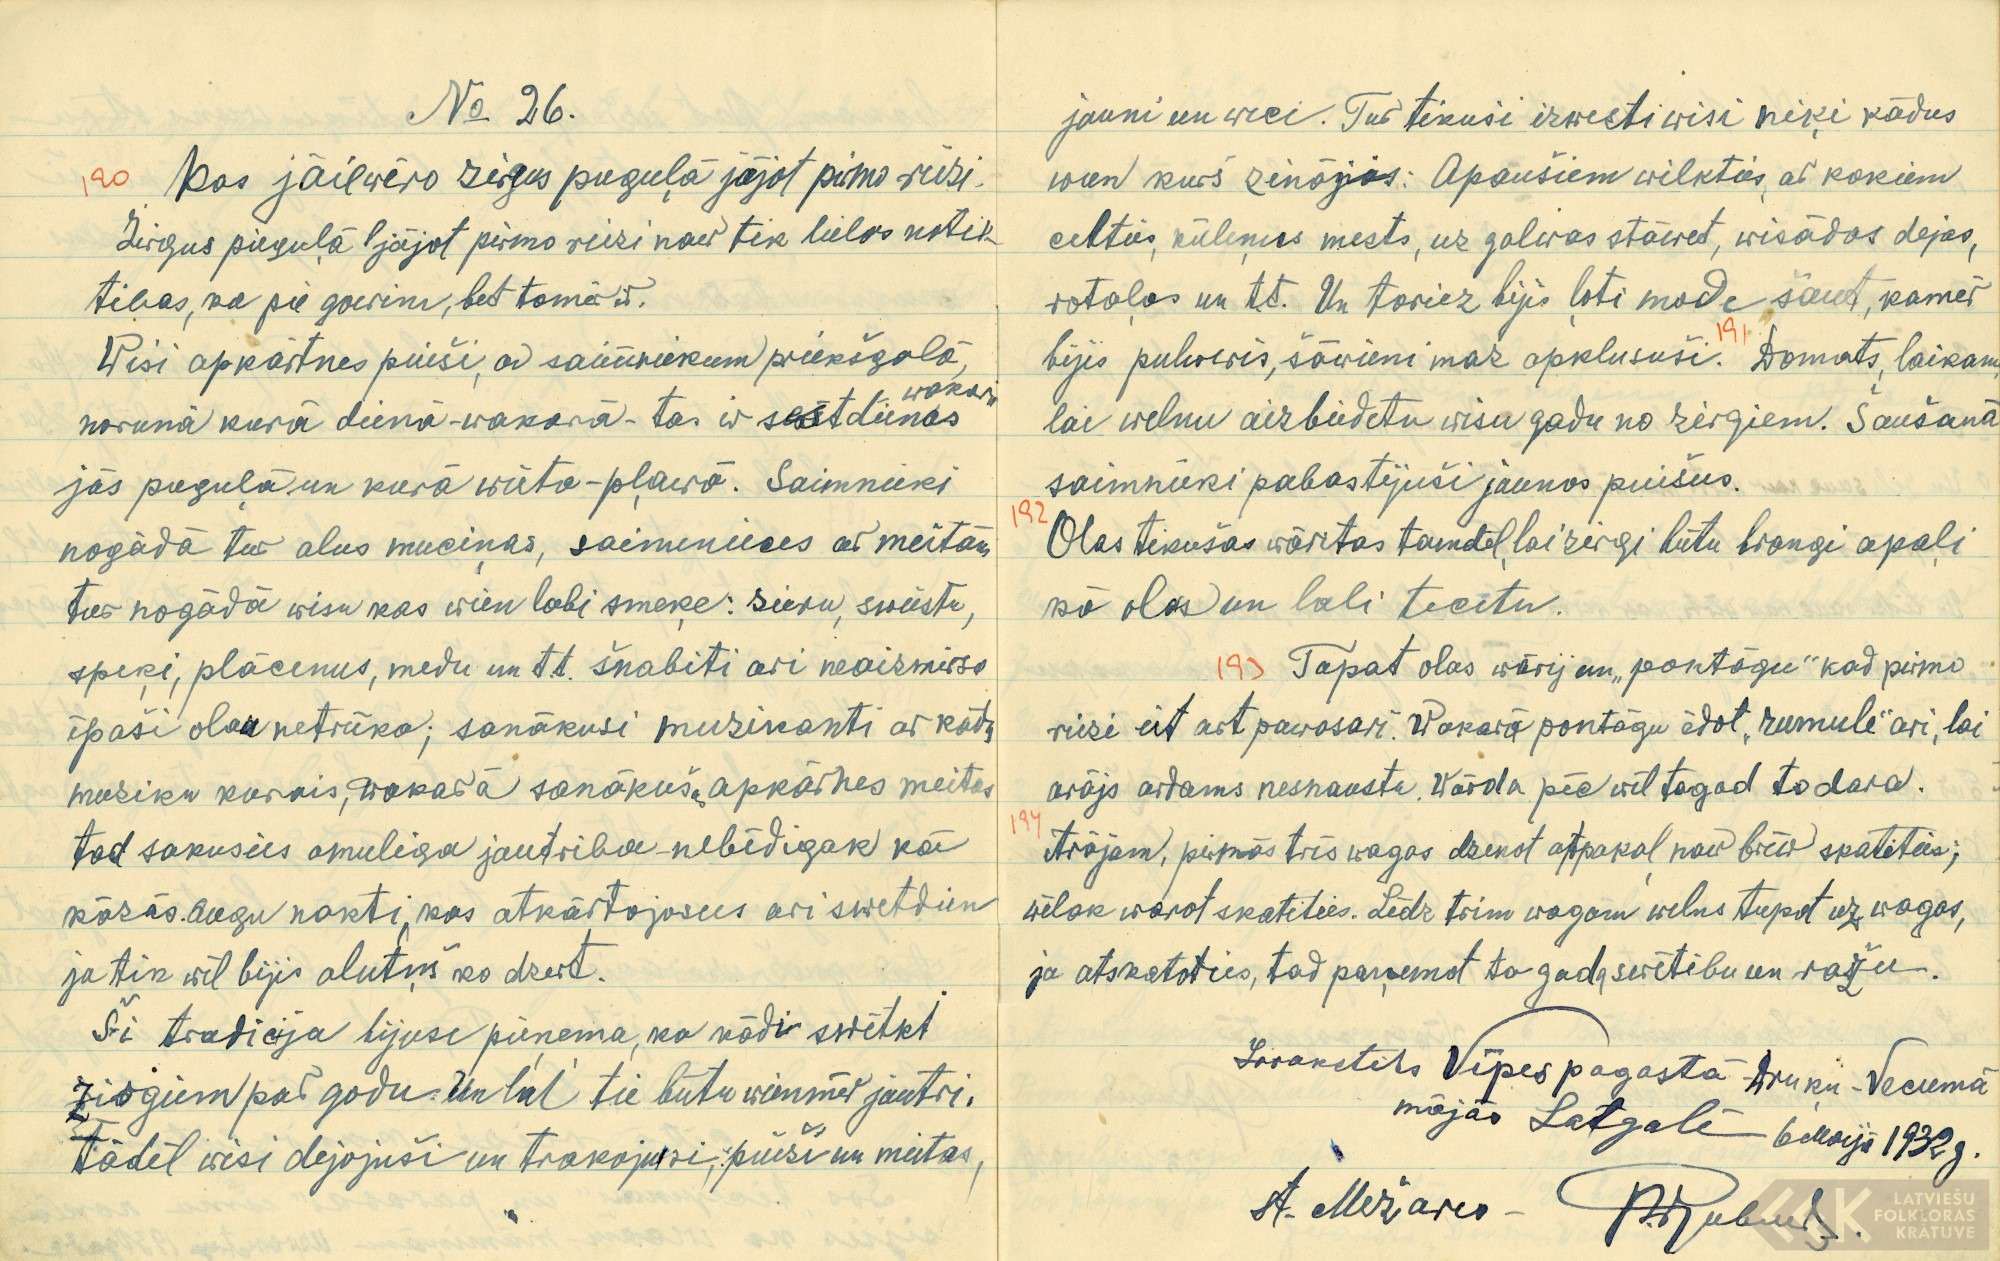 No 26.
190 Kas jāiewēro zirgus pieguļā jājot pirmo reizi.
Zirgus pieguļā jājot pirmo reizi naw tik lielas notik-
tibas, ka pie gowim, bet tomēr ir.
Wisi apkārtnes puiši, ar saimniekiem priekšgalā,
norunā kurā dienā-wakarā - tas ir sestdienas wakarā
jās pieguļā un kurā wieta-pļawā. Saimnieki
nogādā tur alus muciņas, saimnieces ar meitām
tur nogādā wisu kas wien labi smeķe: sieru, swiestu,
speķi, plācenus, medu un t.t. šnabiti ari neaizmirsa
īpaši olau netrūka; sanākusi muzikanti ar kādu
muziku kurais, wakarā sanākušas apkārtnes meitas
tad sakusies omuliga jautriba nebēdigak kā
kāzās. Augu nakti, kas atkārtojosies ari swētdien
ja tik wil bijis alutiņš ko dzert.
Ši tradicija bijusi pieņema, ka kādi swētki
zirgiem par godu. Un lai tie būtu wienmēr jautri.
Tādēl wisi dejojuši un trakojusi, puiši un meitas,
jauni un weci. Tur tikusi izwesti wisi niķi kādus
wien kurš zinājis: Apaušiem wilkties, ar kokiem
celties, kūleņus mests, uz galwas stāwet, wisādas dejas,
rotaļas un t.t. Un toriez bijis ļoti mode šaut, kamēr
bijis pulweris, šāwieni maz apklusuši. 191 Domats, laikam,
lai welnu aizbiedetu wisu gadu no zirgiem. Šaušanā
saimnieki pabastijuši jaunos puišus.
192 Olas tikušas wāritas tamdēļ, lai zirgi būtu brangi apaļi
kā olas un labi tecetu.
193 Tapat olas wārij un „pontāgu“ kad pirmo
reizi eit art pawasari. Wakarā pontāgu ēdot „rumulē“ ari, lai
arājs ardams nesnaustu. Wārda pēc wil tagad to dara.
194 Arājam, pirmās tris wagas dzenot atpakaļ naw briw skatities;
wēlak warot skatities. Lidz trim wagam welns tupot uz wagas,
ja atskatoties, tad paņemot to gada swētibu un ražu.
Sarakstits Vīpes pagastā Druķu-Veciemā
mājās Latgalē 6 Maijā 1932 g.
A. Mežiares -
LATVIEŠU
FOLKLORAS
KRĀTUVE